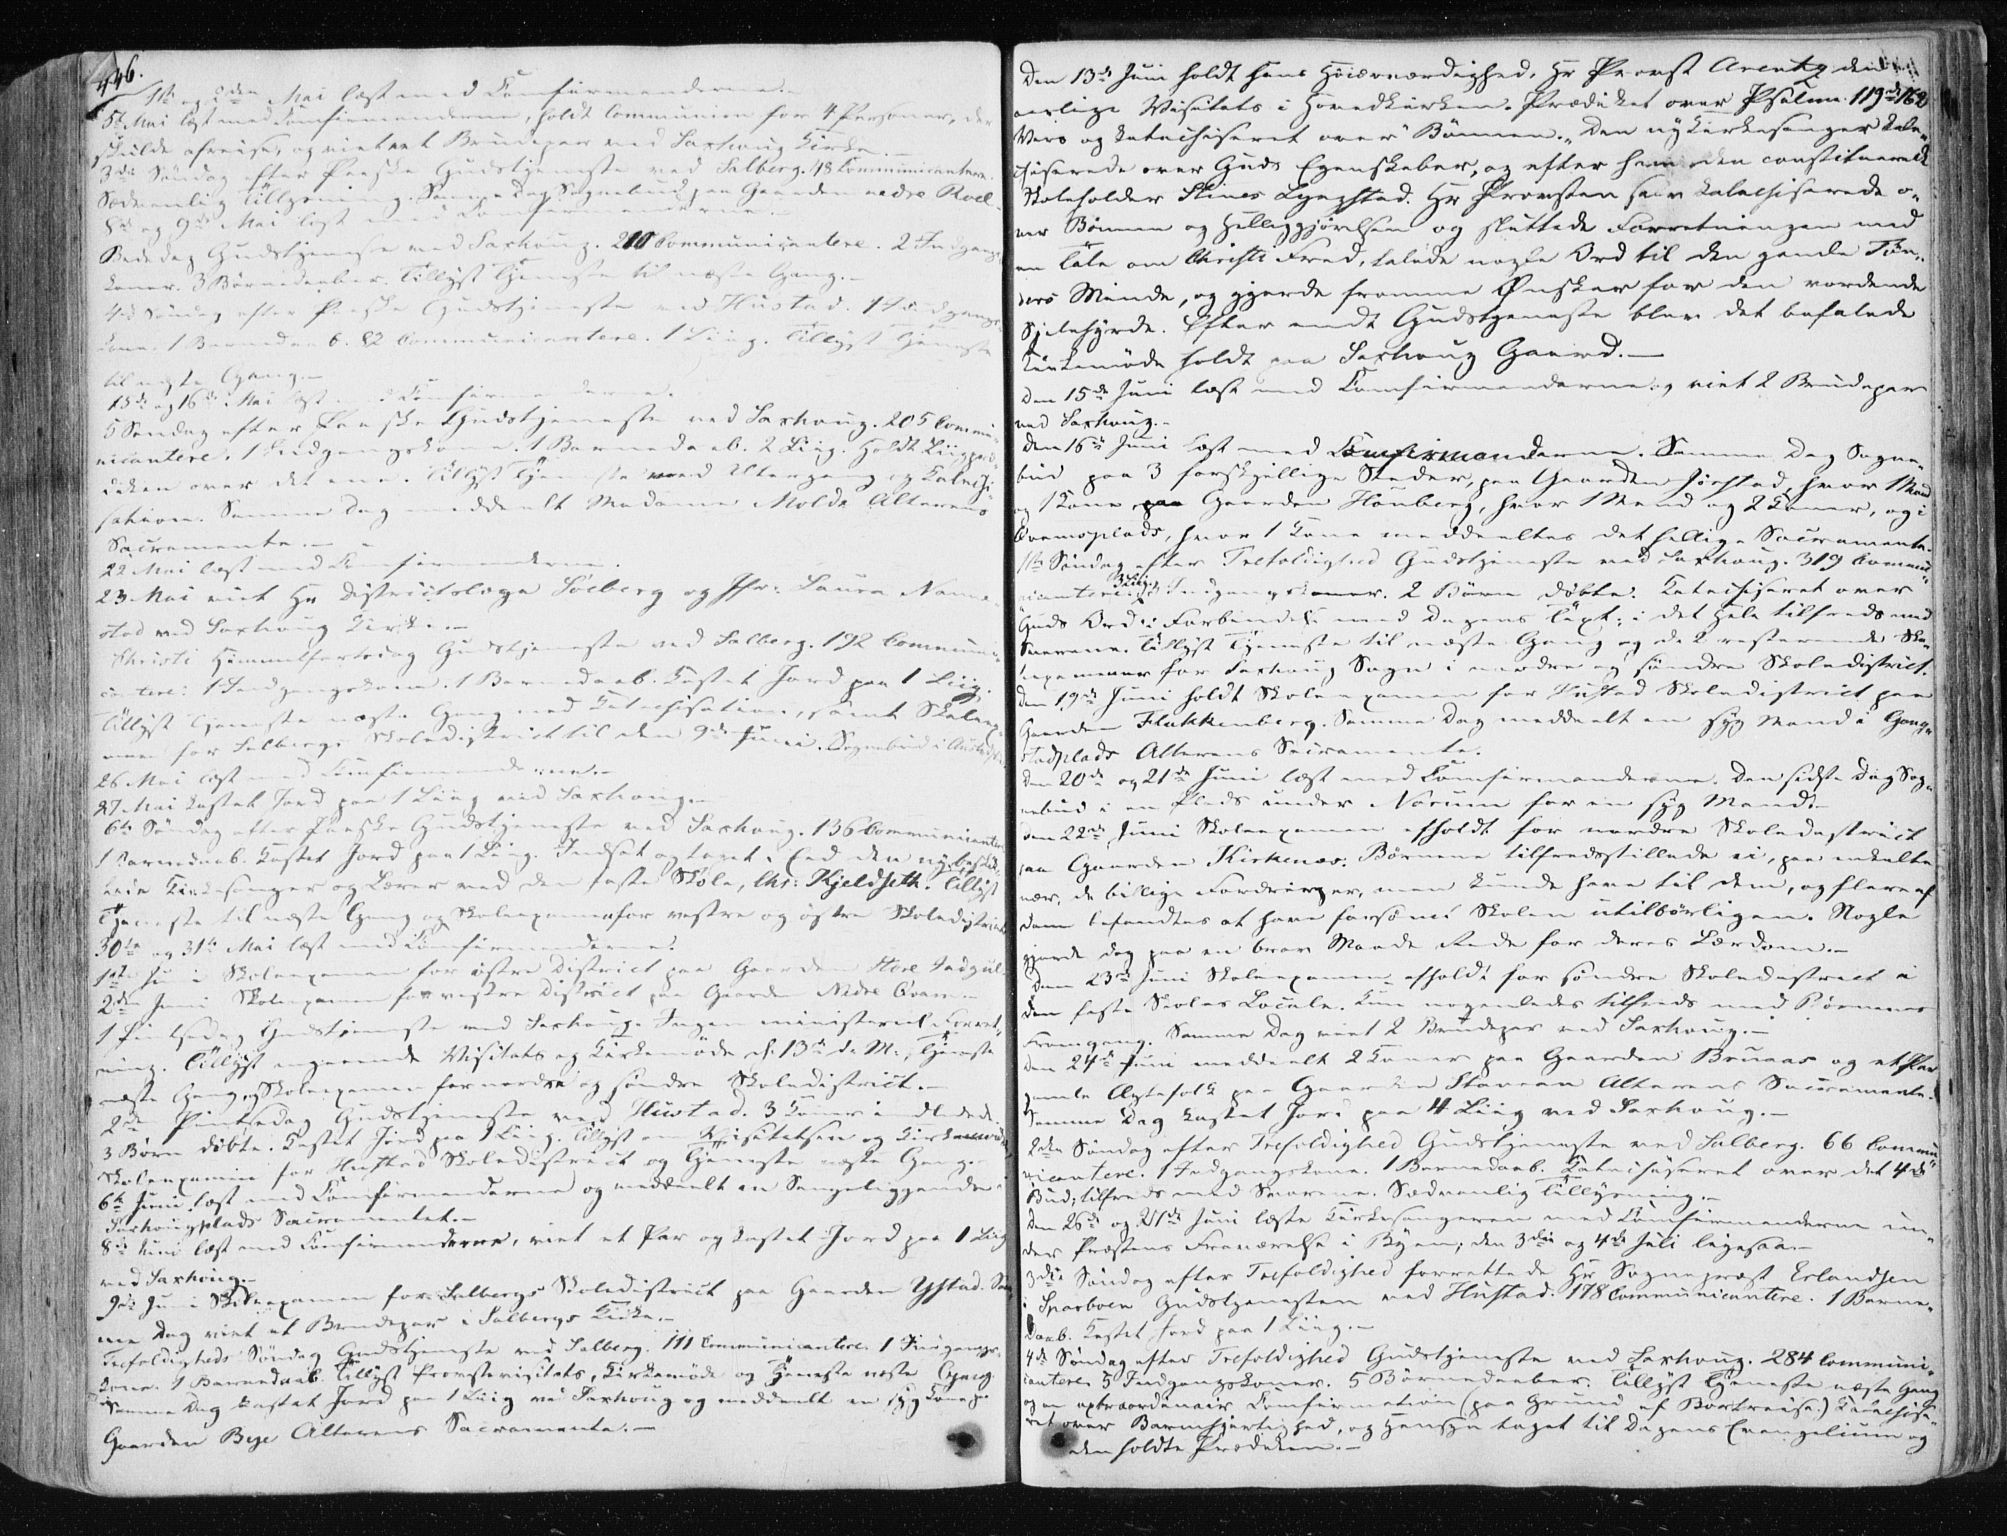 446.
1ste og 2den Mai læst med Confirmanderne.
5te Mai læst med Confirmanderne, holdt Communion for 4 Personer, der
skulde afreise, og viet et Brudepar ved Saxhoug Kirke.
3die Søndag efter Paaske Gudstjeneste ved Salberg. 48 Communicantere.
Sædvanlig Tillysning. Samme Dag Sognebud paa Gaarden nedre Roel.
8de og 9de Mai læst med Confirmanderne.
Bededag Gudstjeneste ved Saxhoug. 210 Communicantere. 2 Indgangs-
koner. 3 Barnedaaber. Tillyst Tjeneste til næste Gang.—
4de Søndag efter Paaske Gudstjeneste ved Hustad. 1 Indgangs-
kone. 1 Barnedaab. 82 Communicantere. 1 Liig. Tillyst Tjeneste
til næste Gang.—
15de og 16de Mai læst med Confirmanderne.
5 Søndag efter Paaske Gudstjeneste ved Saxhoug. 205 Commu-
nicantere. 1 Indgangskone. 1 Barnedaab. 2 Liig. Holdt Liigpræ-
diken over det ene. Tillyst Tjeneste med Altergang og Catechi-
sation. Samme Dag meddeelt Madame Molde Alterens
Sacramente.—
22 Mai læst med Confirmanderne.
23 Mai viet Hr Districtslæge Solberg og Jfr: Laura Nanne-
stad ved Saxhoug Kirke.—
Christi Himmelfartsdag Gudstjeneste ved Salberg. 192 Communi-
cantere. 1 Indgangskone. 1 Barnedaab. Kastet Jord paa 1 Liig.
Tillyst Tjeneste næste Gang med Catechisation, samt Skoleexa-
men for Salbergs Skoledistrict til den 9de Juni. Sognebud i
26 Mai læst med Confirmanderne.—
27 Mai kastet Jord paa 1 Liig ved Saxhoug.—
6te Søndag efter Paaske Gudstjeneste ved Saxhoug. 136 Communicantere
1 Barnedaab. Kastet Jord paa 1 Liig. Indsat og taget i Eed den nybeskik-
kede Kirkesanger og Lærer ved den faste Skole, Chr: Kjeldseth. Tillyst
Tjeneste til næste Gang og Skoleexamen for vestre og østre Skoledistrict.
30te og 31te Mai læst med Confirmanderne.
1ste Juni Skoleexamen for østre District paa Gaarden Store
2den Juni Skoleexamen for vestre District paa Gaarden Nedre Qvam.—
1 Pintsedag Gudstjeneste ved Saxhoug. Ingen ministeriel Forret-
ning. Tillyst angaaende Visitats og Kirkemøde d: 13de d. M., Tjeneste
næste Gang og Skoleexamen for nordre og søndre Skoledistrict.—
2den Pintsedag Gudstjeneste ved Hustad. 3 Koner indledede.
3 Børn døbte. Kastet Jord paa 1 Liig. Tillyst om Visitatsen og Kirkemøde,
Skoleexamen for Hustad Skoledistrict og Tjeneste næste Gang.—
6te Juni læst med Confirmanderne og meddeelt en Sengeliggende i
Saxhougplads Sacramentet.—
8de Juni læst med Confirmanderne, viet et Par og kastet Jord paa 1 Liig
ved Saxhoug.—
9de Juni Skoleexamen for Salbergs Skoledistrict paa Gaarden Ystad. Sam-
me Dag viet et Brudepar i Salbergs Kirke.—
Trefoldigheds Søndag Gudstjeneste ved Salberg. 111 Communicantere. 1 Indgangs-
kone. 1 Barnedaab. Tillyst Provstevisitats, Kirkemøde og Tjeneste næste Gang.
Samme Dag kastet Jord paa 1 Liig ved Saxhoug og meddeelt en syg Kone paa
Gaarden Bye Alterens Sacramente.—
Den 13de Juni holdt Hans Høiærværdighed, Hr Provst Arentz den
aarlige Visitats i Hovedkirken. Prædiket over Psalme 119de 162
Vers og katechiseret over Bønnen. Den ny Kirkesanger kate-
chiserede over Guds Egenskaber, og efter ham den constituerede
Skoleholder Stines Lyngstad. Hr Provsten selv katechiserede o-
ver Bønnen og Helliggjørelsen og sluttede Forretningen med
en Tale om Christi Fred, talede nogle Ord til den gamle Tøn-
ders Minde, og gjorde fromme Ønsker for den vordende
Sjelehyrde. Efter endt Gudstjeneste blev det befalede
Kirkemøde holdt paa Saxhoug Gaard.—
Den 15de Juni læst med Confirmanderne og viet 2 Brudepar
ved Saxhoug.—
Den 16de Juni læst med Confirmanderne. Samme Dag Sogne-
bud paa 3 forskjellige Steder, paa Gaarden Jørstad, hvor 1 Mand
og 1 Kone, paa Gaarden Hønberg, hvor 1 Mand og 2 Koner, og i
Qvamsplads, hvor 1 Kone meddeeltes det hellige Sacramente.
1ste Søndag efter Trefoldighed Gudstjeneste ved Saxhoug. 319 Commu-
nicantere. Indgangskoner. 2 Børn døbte. Katechiseret over
Guds Ord i Forbindelse med Dagens Text; i det Hele tilfreds med
Svarene. Tillyst Tjeneste til næste Gang og de 2 resterende Sko-
leexamener for Saxhoug Sogn i nordre og søndre Skoledistrict.
Den 19de Juni holdt Skoleexamen for Hustad Skoledistrict paa
Gaarden Flekkenberg. Samme Dag meddeelt en syg Mand i Gang-
stadplads Alterens Sacramente.
Den 20de og 21de Juni læst med Confirmanderne. Den sidste Dag Sog-
nebud i en Plads under Norum for en syg Mand.—
Den 22de Juni Skoleexamen afholdt for nordre Skoledistrict
paa Gaarden Kirkenæs. Børnene tilfredsstillede ei, paa enkelte
nær, de billige Fordringer, man kunde have til dem, og flere af
dem befandtes at have forsømt Skolen utilbørligen. Nogle
gjorde dog paa en brav Maade Rede for deres Lærdom.—
Den 23de Juni Skoleexamen afholdt for søndre Skoledistrict i
den faste Skoles Locale. Kun nogenledes tilfreds med Børnenes
Fremgang. Samme Dag viet 2 Brudepar ved Saxhoug.—
Den 24de Juni meddeelt 2 Koner paa Gaarden Brunaas og et Par
gamle Ægtefolk paa Gaarden Stavran Alterens Sacramente.
Samme Dag kastet Jord paa 4 Liig ved Saxhoug.—
2den Søndag efter Trefoldighed Gudstjeneste ved Salberg. 66 Commu-
nicantere. 1 Indgangskone. 1 Barnedaab. Katechiseret over det 4de
Bud; tilfreds med Svarene. Sædvanlig Tillysning.—
Den 26de og 27de Juni læste Kirkesangeren med Confirmanderne un-
der Præstens Fraværelse i Byen; den 3die og 4de Juli ligesaa.—
3die Søndag efter Trefoldighed forrettede Hr Sognepræst Erlandsen
i Sparboen Gudstjenesten ved Hustad. 178 Communicantere. 1 Barne-
daab. Kastet Jord paa 1 Liig.—
4de Søndag efter Trefoldighed Gudstjeneste ved Saxhoug. 284 Communi-
cantere. 5 Indgangskoner. 5 Barnedaaber. Tillyst Tjeneste næste Gang
og en extraordinair Confirmation (paa Grund af Bortreise.) Katechise-
ret over Barmhjertighed, og Hensyn taget til Dagens Evangelium og
den holdte Prædiken.—